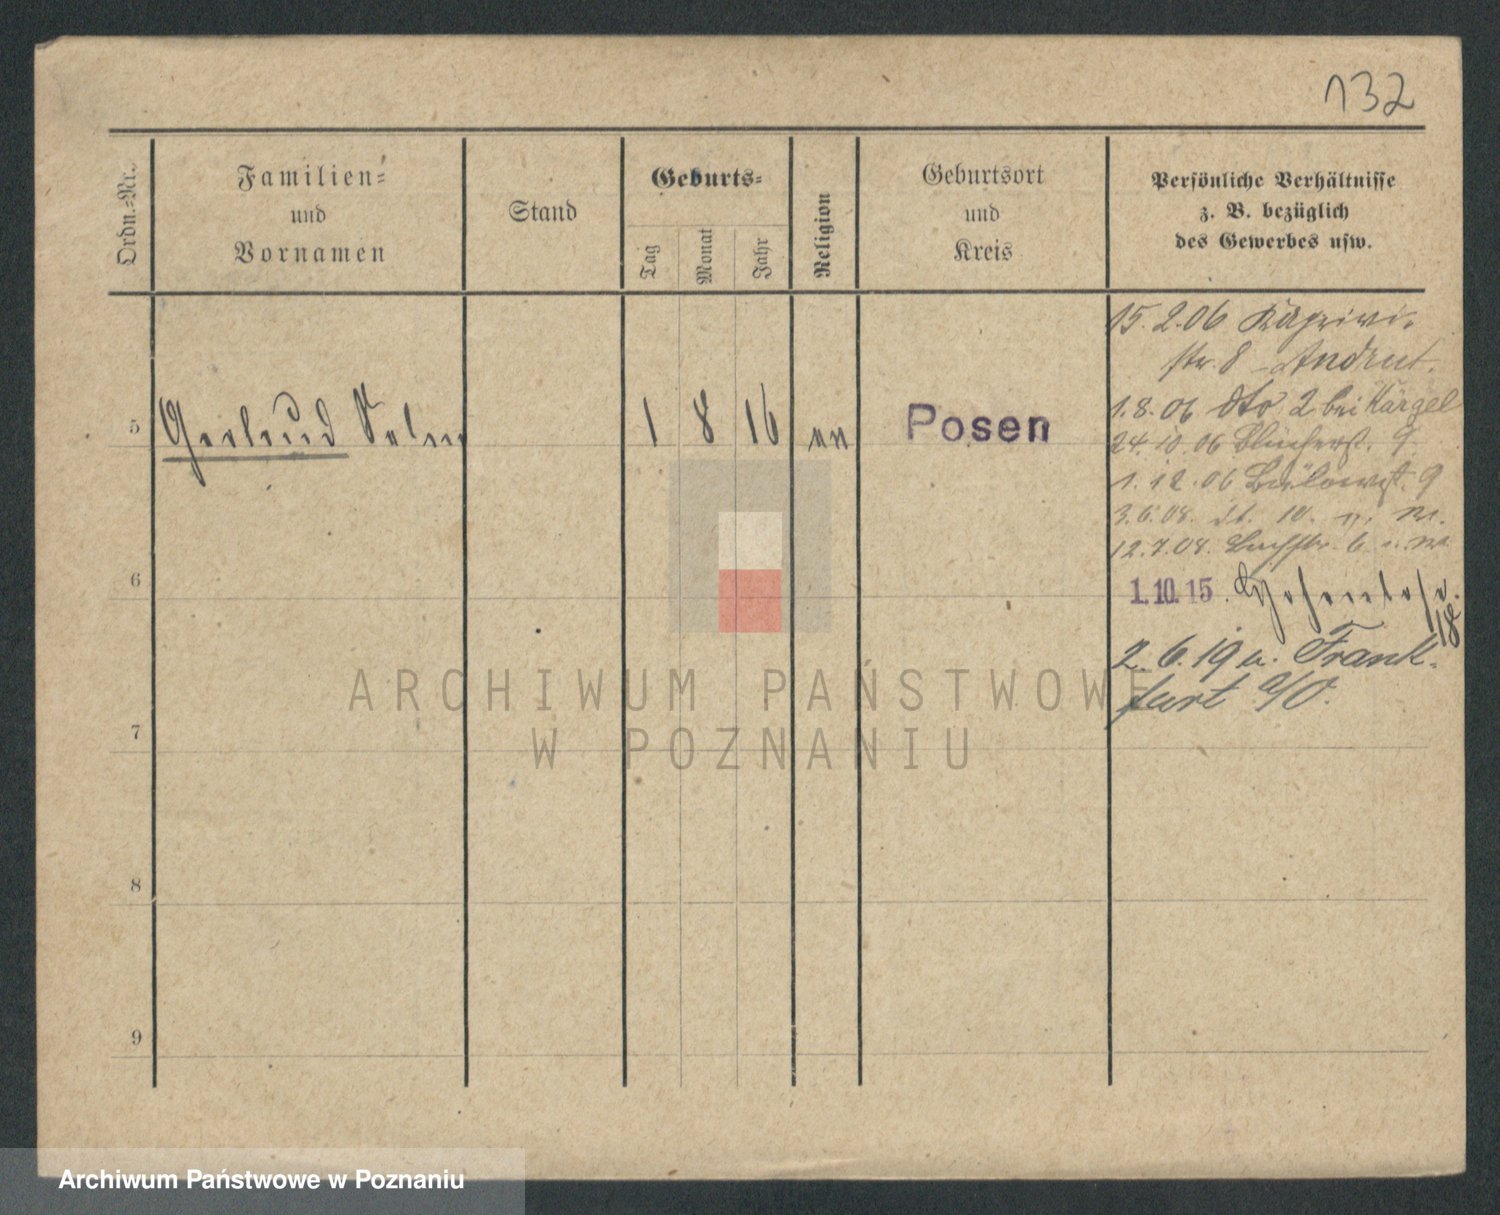 132
Ordn.-Nr.
Familien-
und
Vornamen
Stand
Geburts-
Tag
Monat
Jahr
Religion
Geburtsort
und
Kreis
Persönliche Verhältnisse
z. B. bezüglich
des Gewerbes usw.
15.2.06
str. 8
1.8.06 dto 2 bei Kärgel
24.10.06 Blücherst. 9
1.12.06 Bülowst. 9
3.6.08. 10.
12.7.08. 6
1.10.15. Hohenlohe.
18
2.6.19 n. Frank-
furt a/O.
5
1 8 16
Posen
6
7
8
9
ARCHIWUM PAŃSTWOWE
W POZNANIU
Archiwum Państwowe w Poznaniu